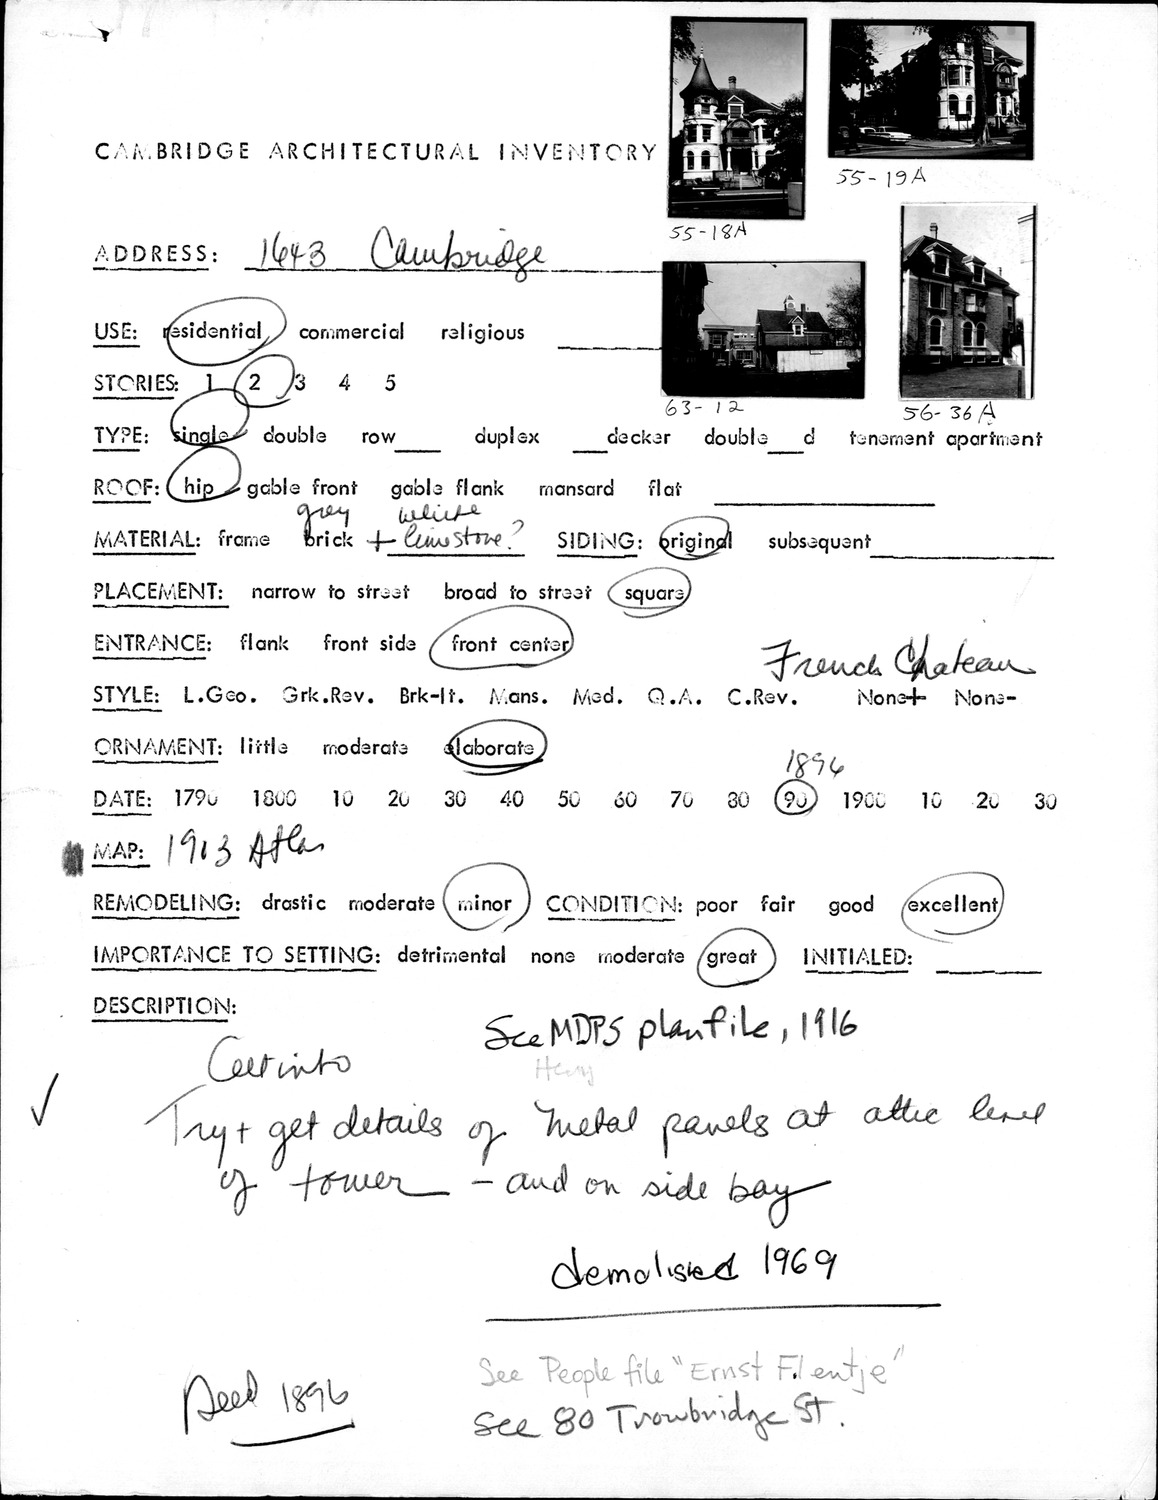 CAMBRIDGE ARCHITECTURAL INVENTORY
55-18A
55-19A
63-12
56-36A
ADDRESS: 1643 Cambridge
USE: residential commercial religious
STORIES: 1 2 3 4 5
TYPE: single double row___ duplex ___decker double___d tenement apartment
ROOF: hip gable front gable flank mansard flat
grey white
MATERIAL: frame brick + limestone? SIDING: original subsequent
PLACEMENT: narrow to street broad to street square
ENTRANCE: flank front side front center
French Chateau
STYLE: L.Geo. Grk.Rev. Brk-It. Mans. Med. Q.A. C.Rev. None+ None-
ORNAMENT: little moderate elaborate
1896
DATE: 1790 1800 10 20 30 40 50 60 70 80 90 1900 10 20 30
MAP: 1903 Atlas
REMODELING: drastic moderate minor CONDITION: poor fair good excellent
IMPORTANCE TO SETTING: detrimental none moderate great INITIALED:
DESCRIPTION:
See MDPS planfile, 1916
Get into
Henry
Try + get details of metal panels at attic level
of tower - and on side bay
demolished 1969
See People file "Ernst Flentje"
Deed 1896
see 80 Trowbridge St.